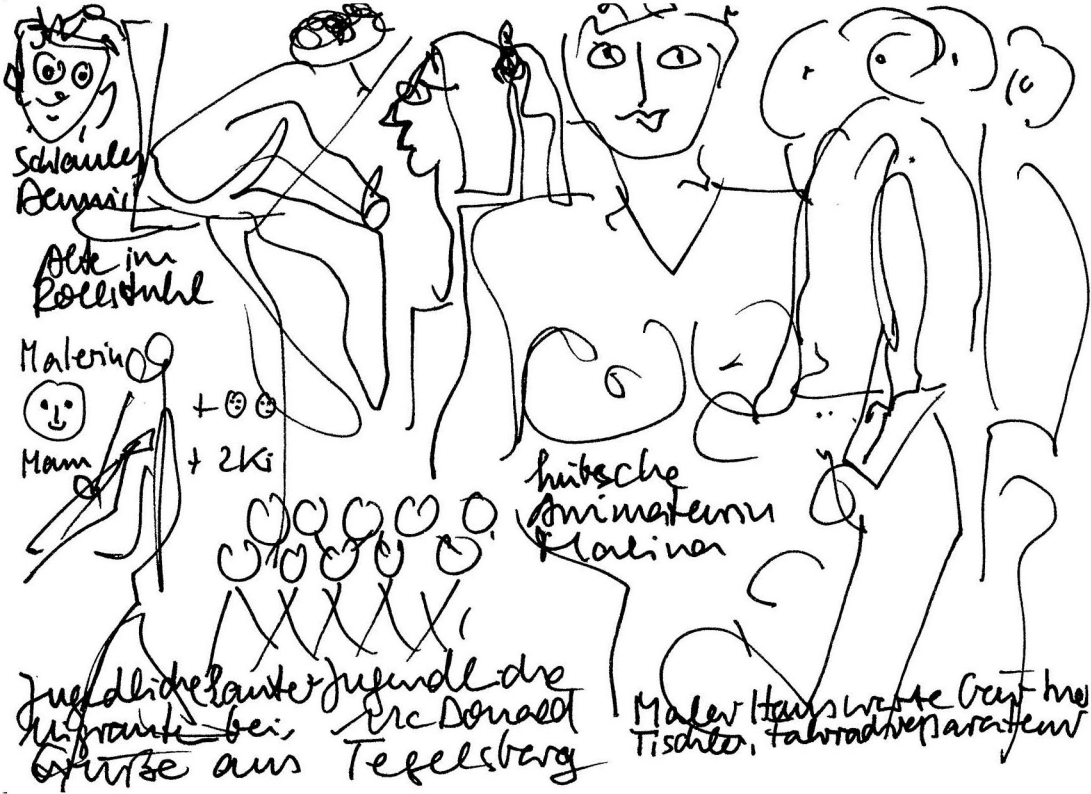 Schlauer
Dennis
Alte im
Rollstuhl
Malerin
+
Mann + 2 Ki
hübsche
Animateurin
Malina
Jugendliche lauter Jugendliche
Migranten bei, Mc Donald
Grüße aus Tegelsberg
Maler Hauswarte
Tischler, Fahrradreparateur